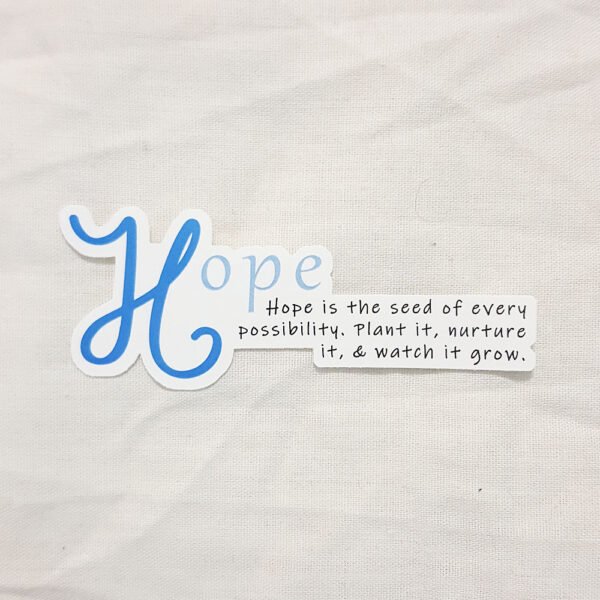 Hope
Hope is the seed of every
possibility. Plant it, nurture
it, & watch it grow.